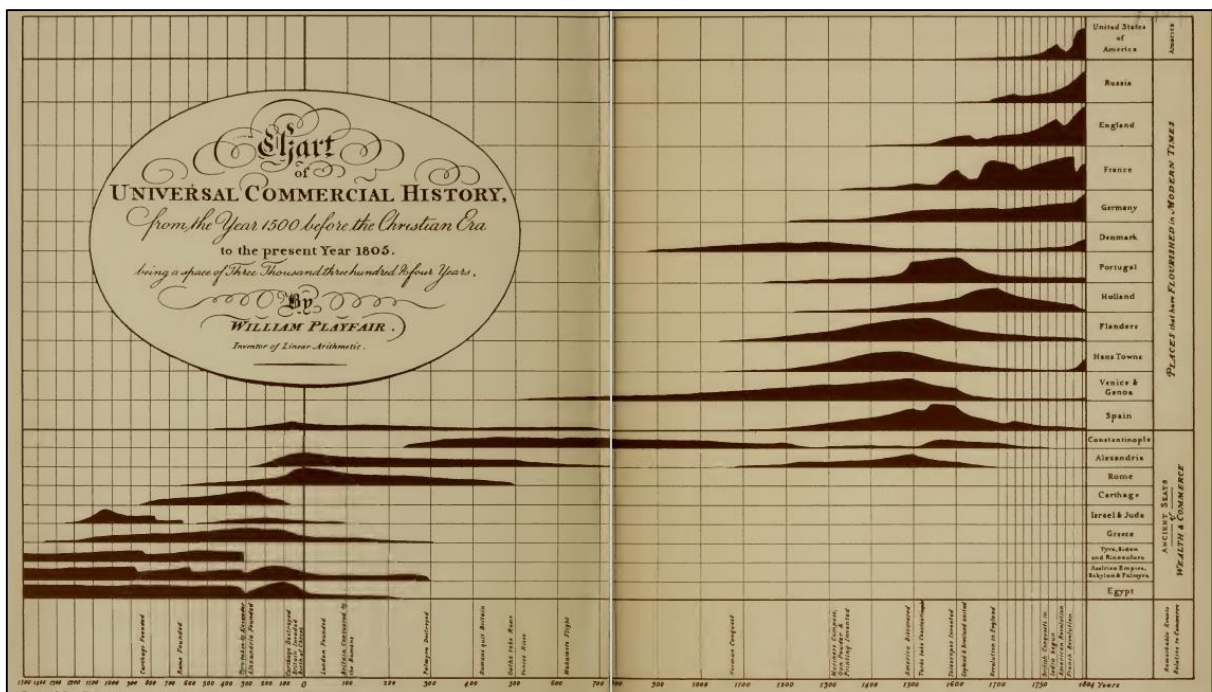 Chart
of
UNIVERSAL COMMERCIAL HISTORY,
from the Year 1500 before the Christian Era
to the present Year 1805.
being a space of Three Thousand three hundred & four Years.
By
WILLIAM PLAYFAIR.
Inventor of Linear Arithmetic.
United States
of
America
Russia
England
France
Germany
Denmark
Portugal
Holland
Flanders
Hans Towns
Venice &
Genoa
Spain
Constantinople
Alexandria
Rome
Carthage
Israel & Juda
Greece
Tyre, Sidon
Assirian Empire,
Babylon & Palmyra
Egypt
America
PLACES that have FLOURISHED in MODERN TIMES
ANCIENT SEATS
of
WEALTH & COMMERCE
Remarkable Events
Relative to Commerce
Carthage Founded
Rome Founded
Tyre taken by Alexander
Alexandria Founded
Carthage Destroyed
Britain Invaded
Birth of Christ
London Founded
Britain Conquered by
the Romans
Palmyra Destroyed
Romans quit Britain
Goths take Rome
Venice Rises
Mahomets Flight
Norman Conquest
Mariners Compass,
Gun Powder &
Printing Invented
America Discovered
Turks take Constantinople
England & Scotland united
Revolution in England
British Conquests in
India begun
American Revolution
French Revolution
1500 1400 1300 1200 1100 1000 900 800 700 600 500 400 300 200 100 0 100 200 300 400 500 600 700 800 900 1000 1100 1200 1300 1400 1500 1600 1700 1750 1804 Years